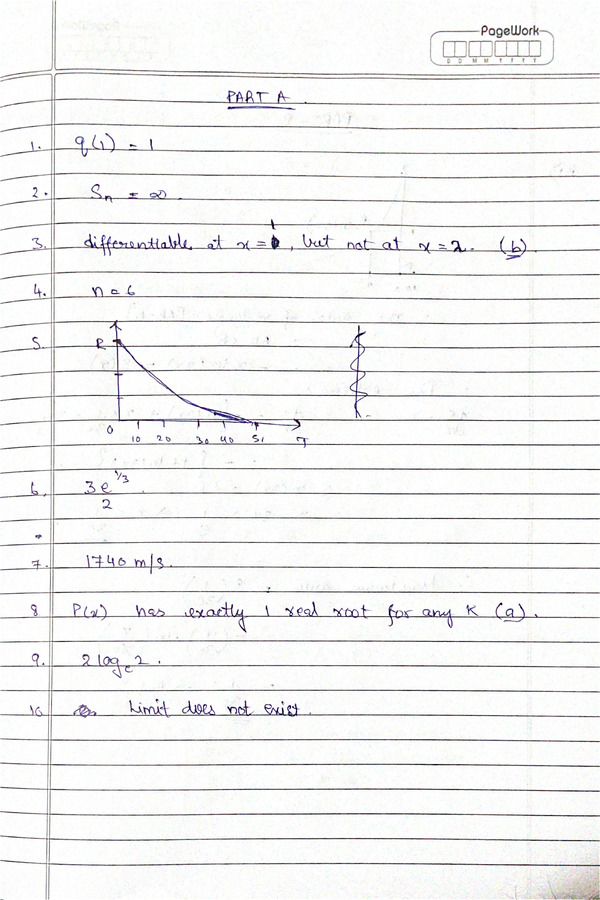 PageWork
D D M M Y Y Y Y
PART A.
1. q(1) = 1
2. Sn = ∞.
3. differentiable at x = 1, but not at x = 2. (b).
4. n = 6
5. R
0 10 20 30 40 51 T
6. 3e^(1/3) / 2
7. 1740 m/s.
8 P(x) has exactly 1 real root for any K (a).
9. 2 logₑ2.
10 Limit does not exist.